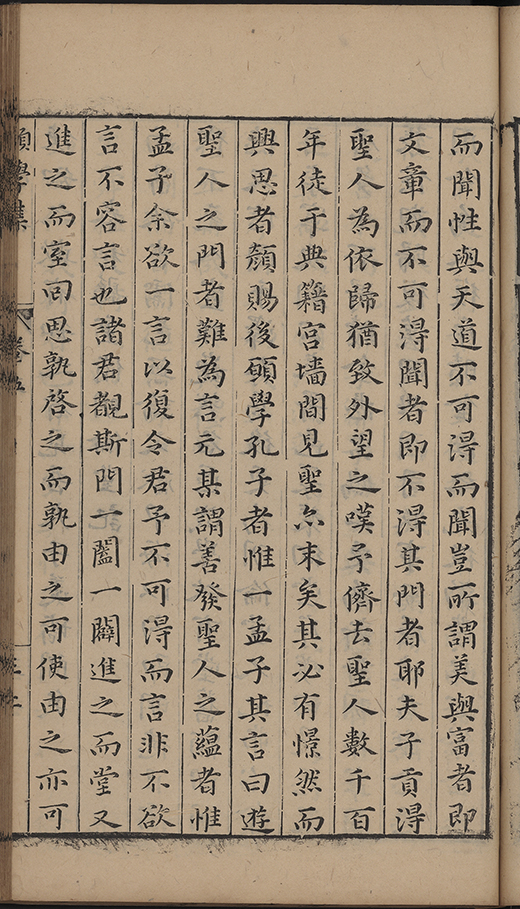 而聞性與天道不可淂而聞豈所謂美與富者即
文章而不可淂聞者即不淂其門者耶夫子貢淂
聖人為依歸猶致外望之嘆予儕去聖人數千百
年徒于典籍宮墻間見聖亦末矣其必有憬然而
興思者顏賜後願學孔子者惟一孟子其言曰遊
聖人之門者難為言元某謂善發聖人之蘊者惟
孟子余欲一言以復令君予不可淂而言非不欲
言不容言也諸君覩斯門一闔一闢進之而堂又
進之而室囘思孰啓之而孰由之可使由之亦可
願學集
卷五